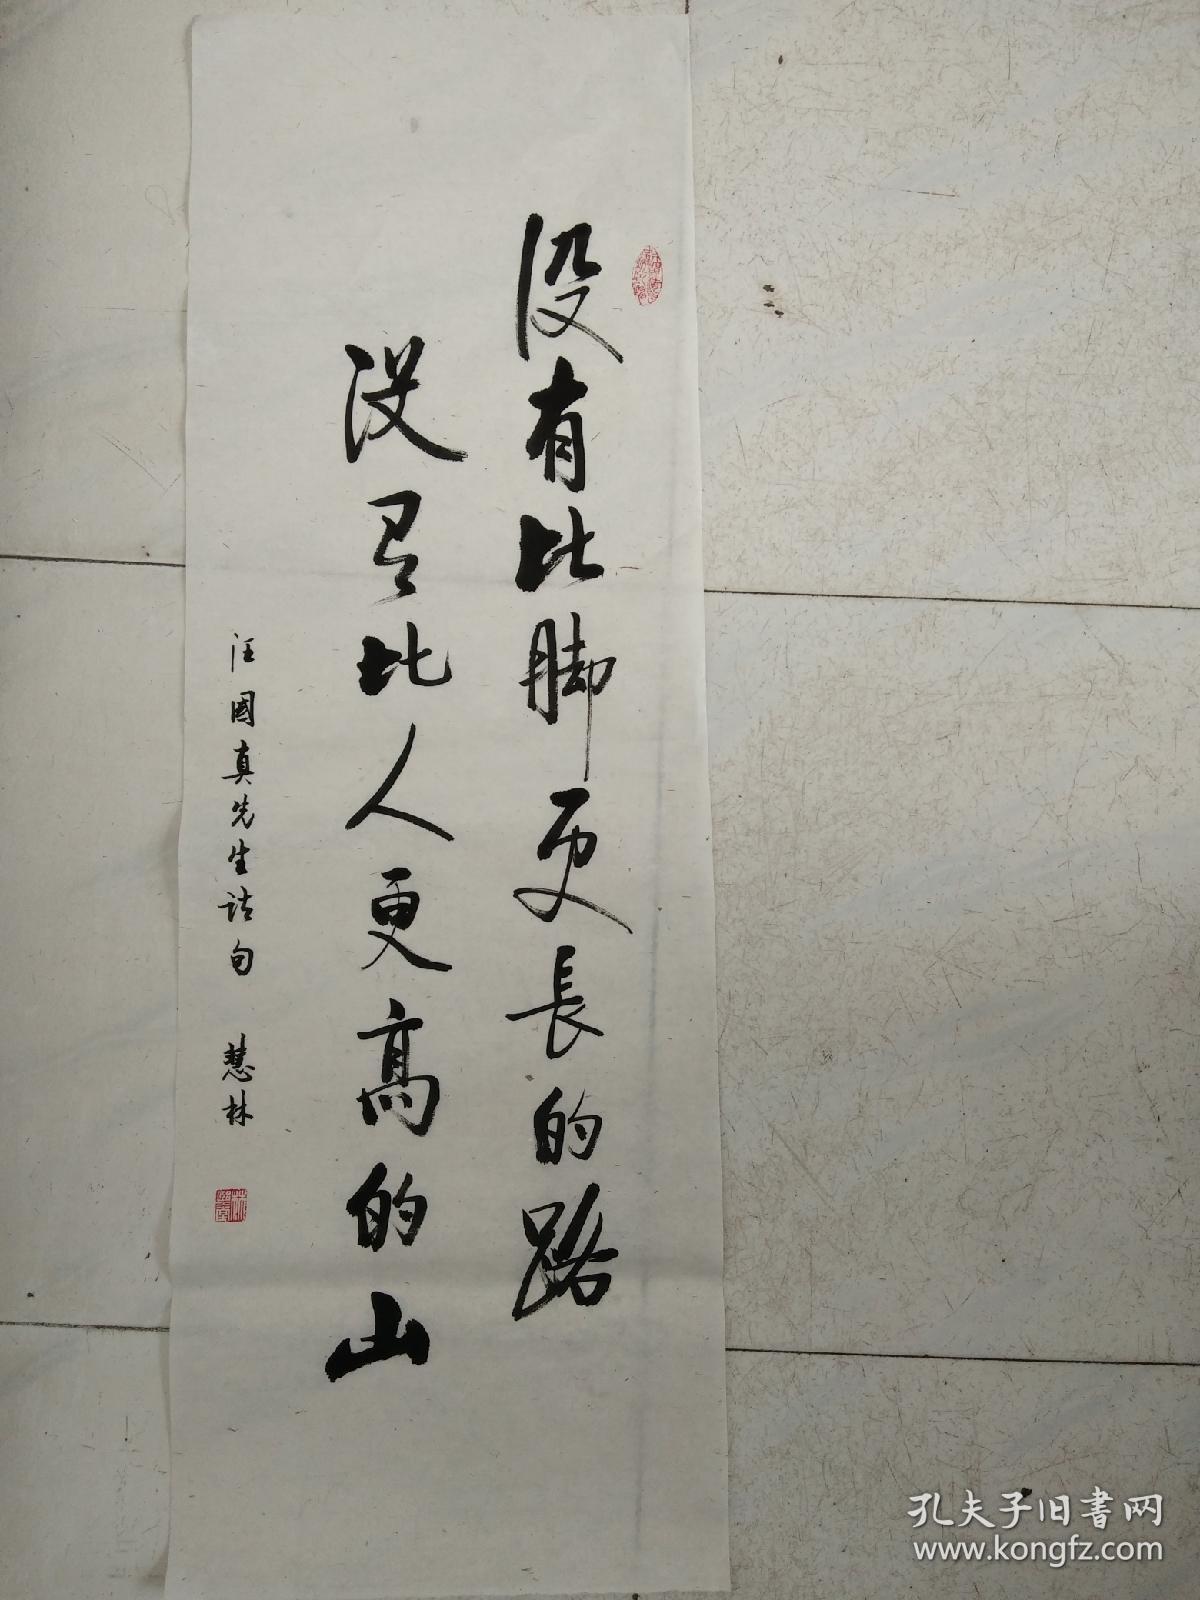 没有比脚更长的路
没有比人更高的山
汪國真先生诗句 慧林
孔夫子旧書网
www.kongfz.com